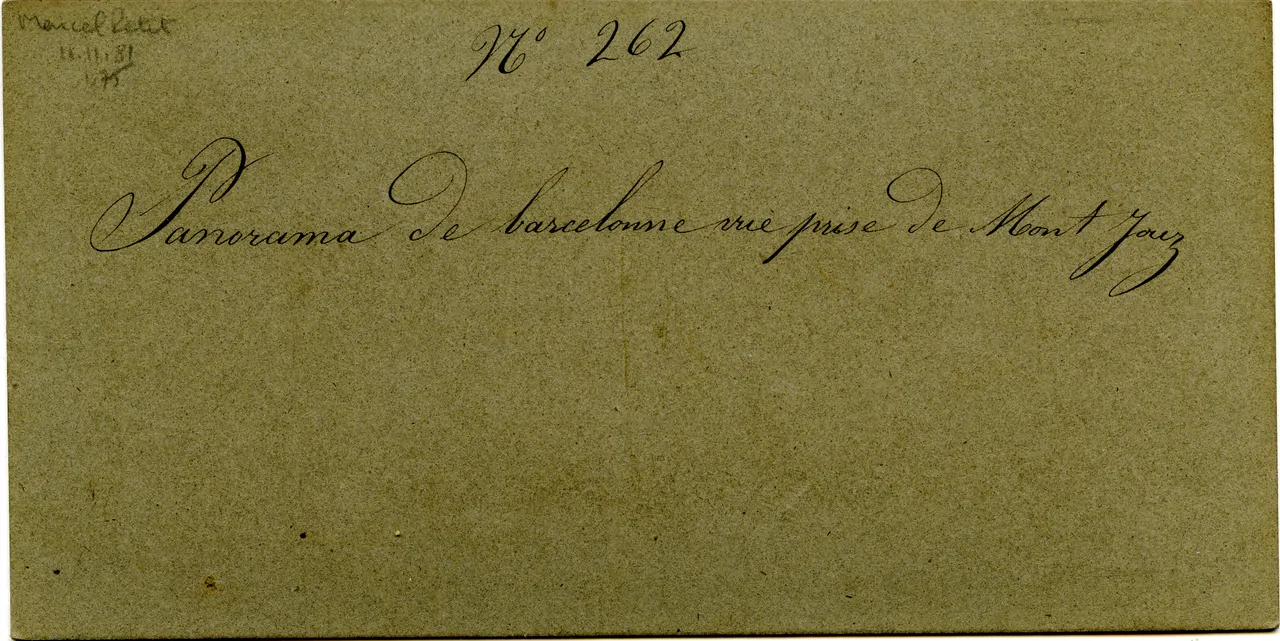 Marcel Petit
N° 262
Panorama de barcelonne vue prise de Mont Jouz